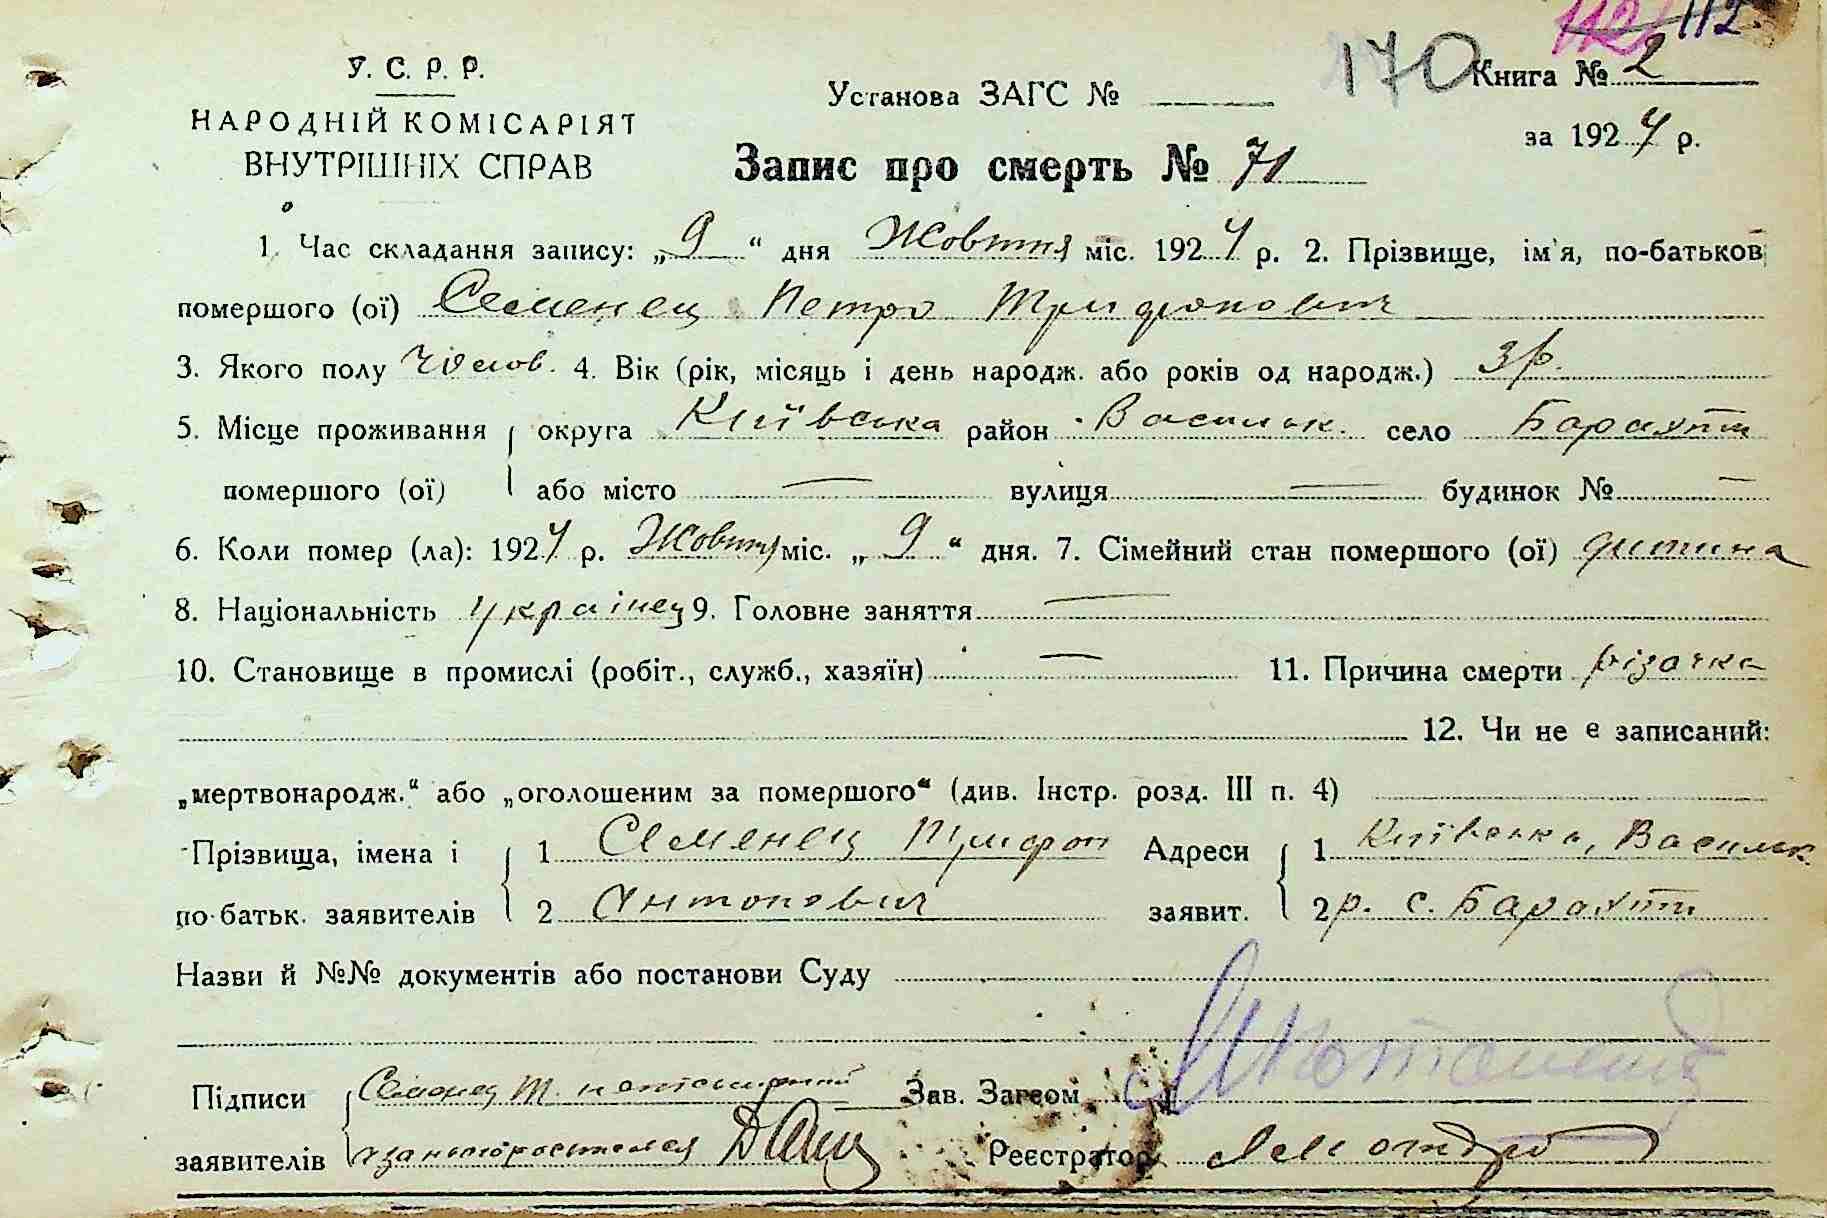 112 112
170
У. С. Р. Р.
НАРОДНІЙ КОМІСАРІЯТ
ВНУТРІШНІХ СПРАВ
Установа ЗАГС №
Книга № 2
за 1924 р.
Запис про смерть № 71
1. Час складання запису: „9“ дня Жовтня міс. 1924 р. 2. Прізвище, ім'я, по-батькові
помершого (ої) Семенец Петро Трифонович
3. Якого полу Чолов. 4. Вік (рік, місяць і день народж. або років од народж.) 3 р.
5. Місце проживання округа Київська район Васильк. село Барахти
помершого (ої) або місто — вулиця — будинок № —
6. Коли помер (ла): 1924 р. Жовтня міс. „9“ дня. 7. Сімейний стан помершого (ої) дитина
8. Національність українец 9. Головне заняття —
10. Становище в промислі (робіт., служб., хазяїн) — 11. Причина смерти різачка
12. Чи не є записаний:
„мертвонародж.“ або „оголошеним за помершого“ (див. Інстр. розд. III п. 4)
Прізвища, імена і 1 Семенец Трифон Адреси 1 Київська, Васильк.
по-батьк. заявителів 2 Антонович заявит. 2 р. с. Барахти
Назви й №№ документів або постанови Суду
Підписи Семенец Т. Зав. Загсом
заявителів Реєстратор